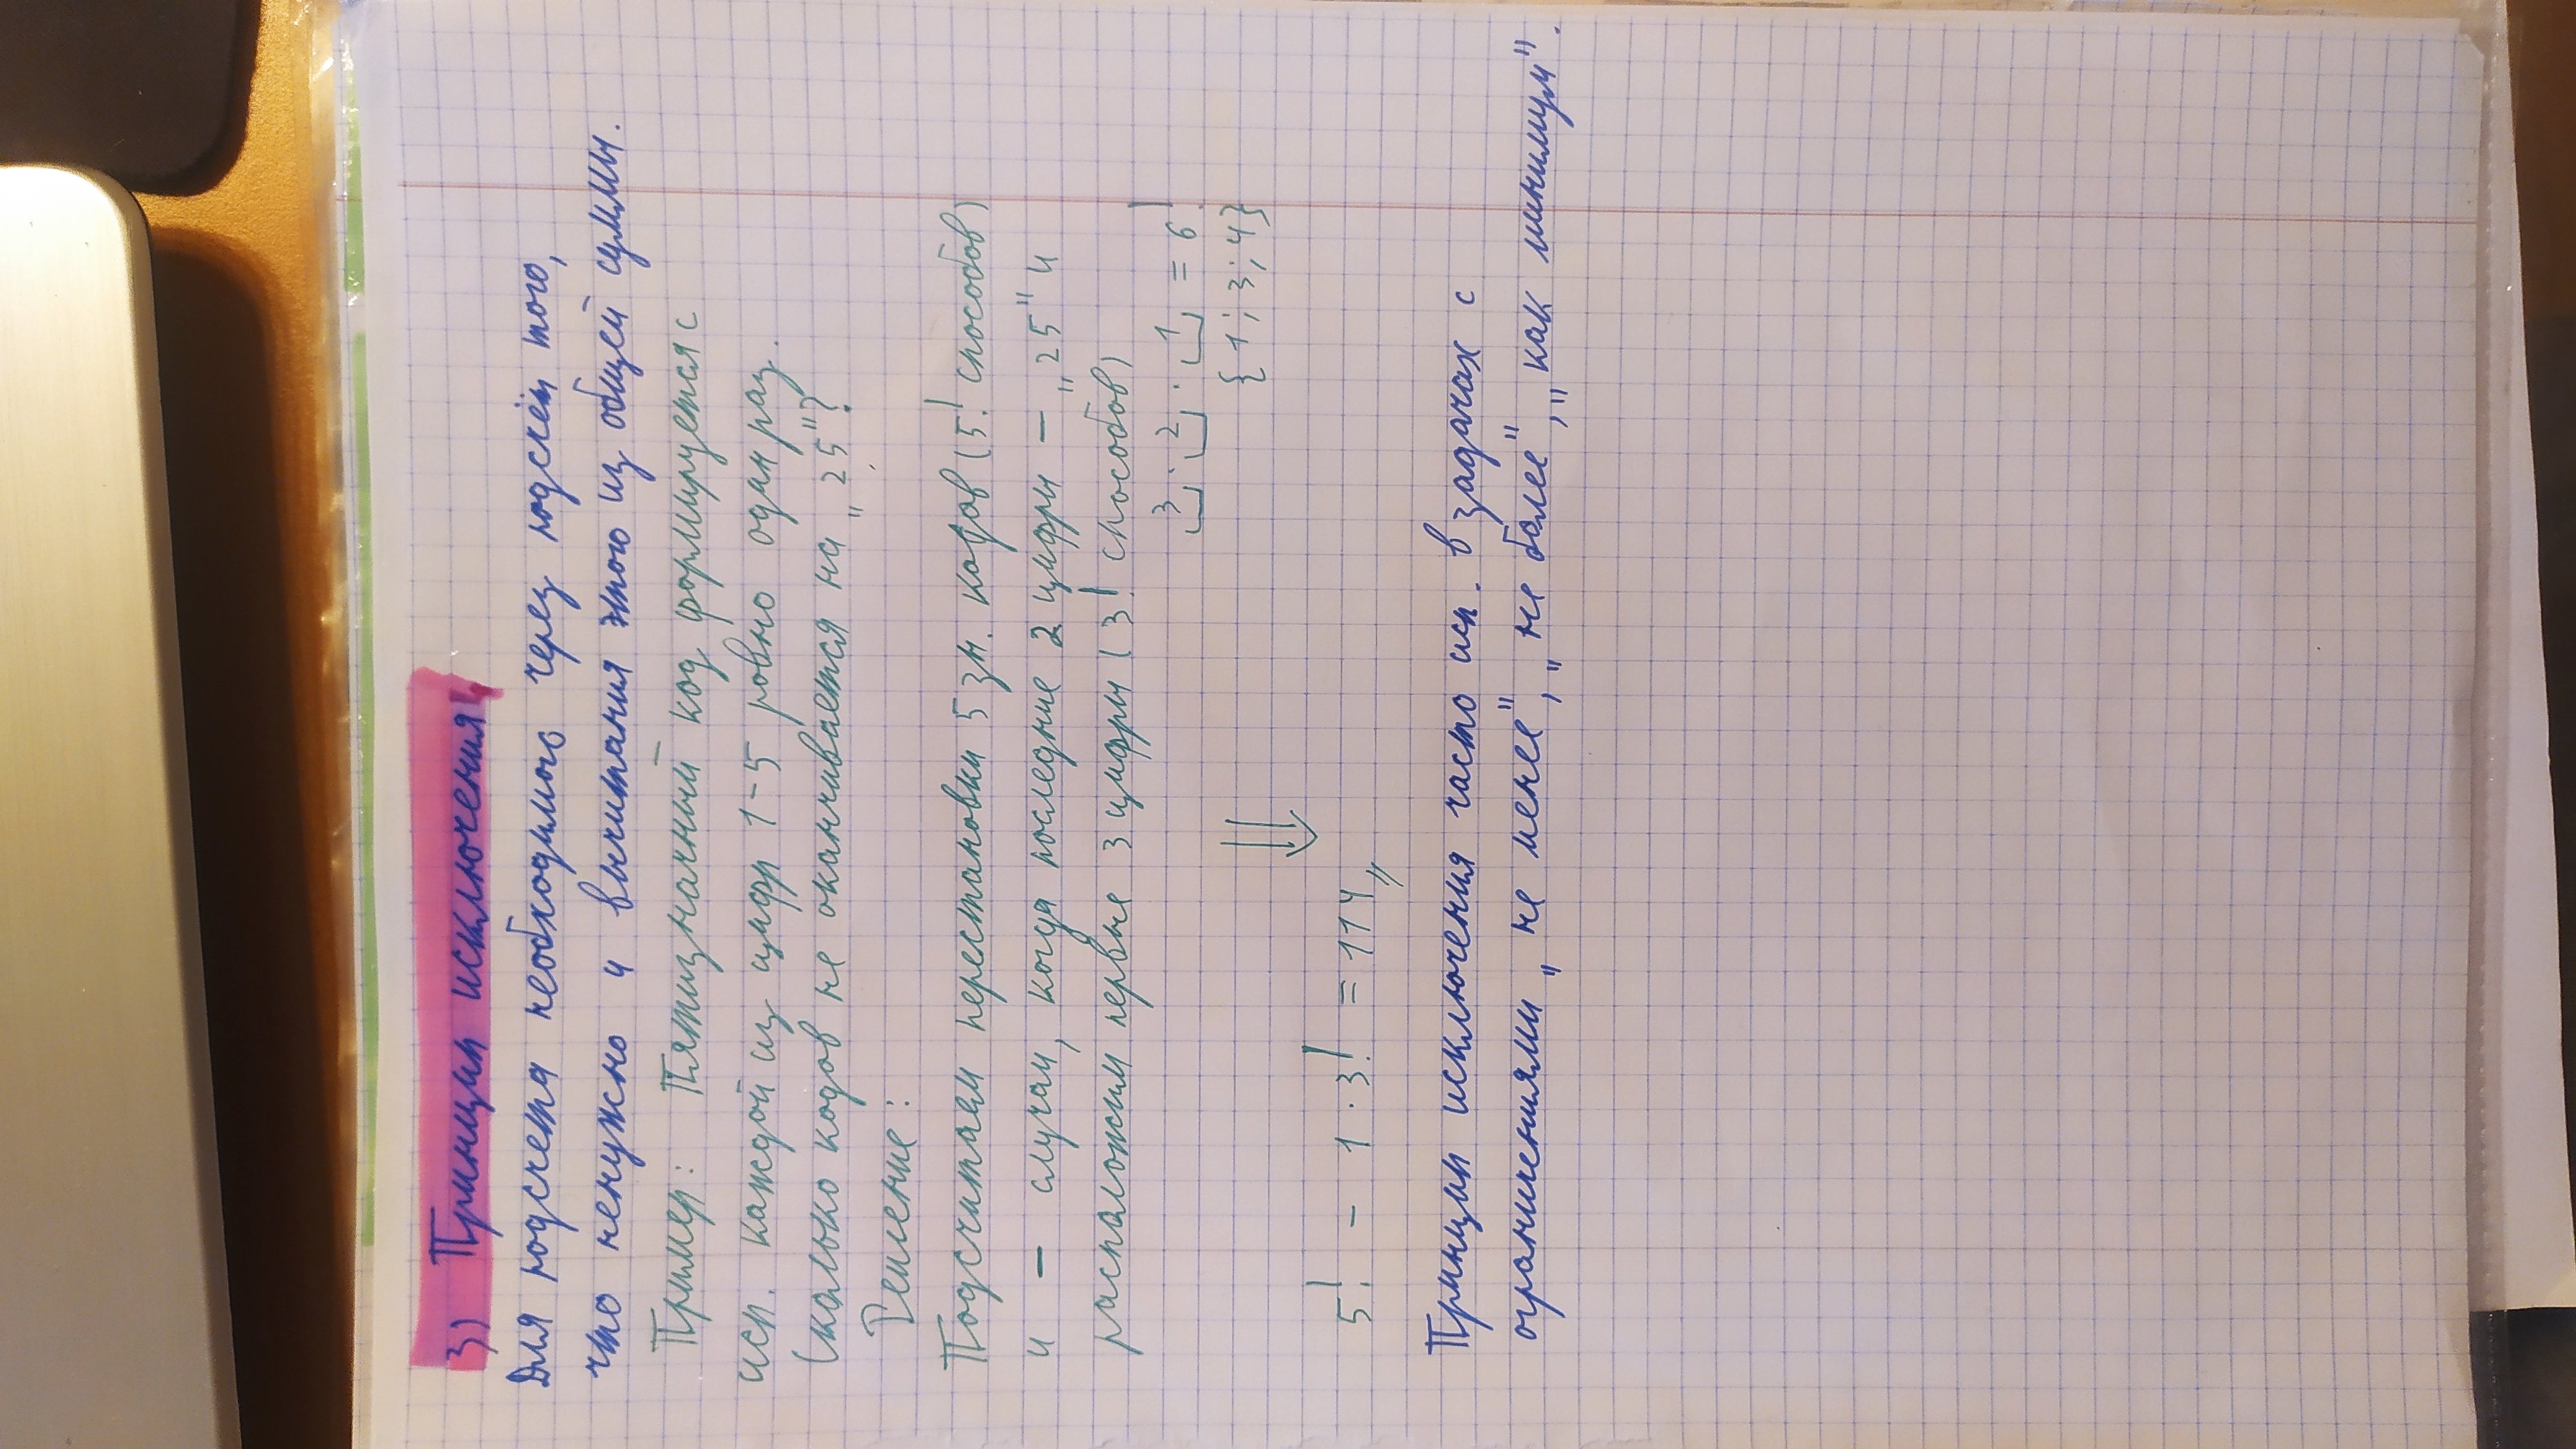 3) Принцип исключения
Для подсчета необходимого через подсчёт того,
что ненужно и вычитания этого из общей суммы.
Пример: Пятизначный код формируется с
исп. каждой из цифр 1-5 ровно один раз.
Сколько кодов не оканчивается на „25"?
Решение:
Подсчитаем перестановки 5 зн. кодов (5! способов)
и — случаи, когда последние 2 цифры — „25" и
расположим первые 3 цифры (3! способов)
3 · 2 · 1 = 6!
{1; 3; 4}
5! - 1 · 3! = 114,,
Принцип исключения часто исп. в задачах с
ограничениями „не менее", „не более", „как минимум".